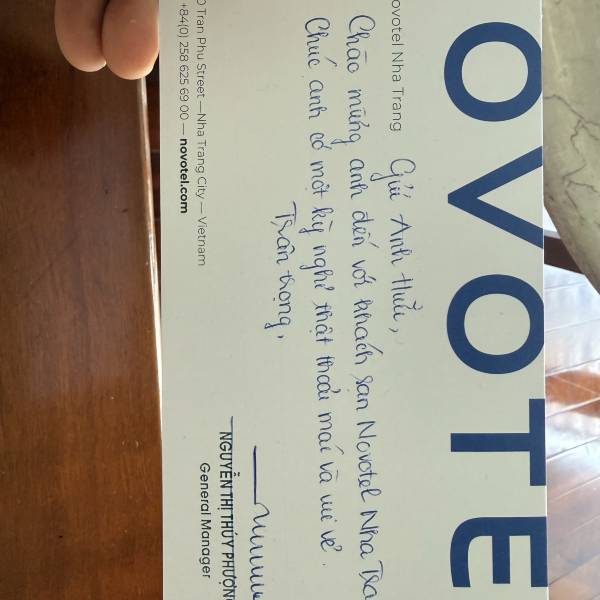 OVOTE
ovotel Nha Trang
Gửi Anh Hữu,
Chào mừng anh đến với khách sạn Novotel Nha Tra
Chúc anh có một kỳ nghỉ thật thoải mái và vui vẻ.
Trân trọng,
NGUYỄN THỊ THÚY PHƯỢN
General Manager
0 Tran Phu Street — Nha Trang City — Vietnam
+84(0) 258 625 69 00 — novotel.com